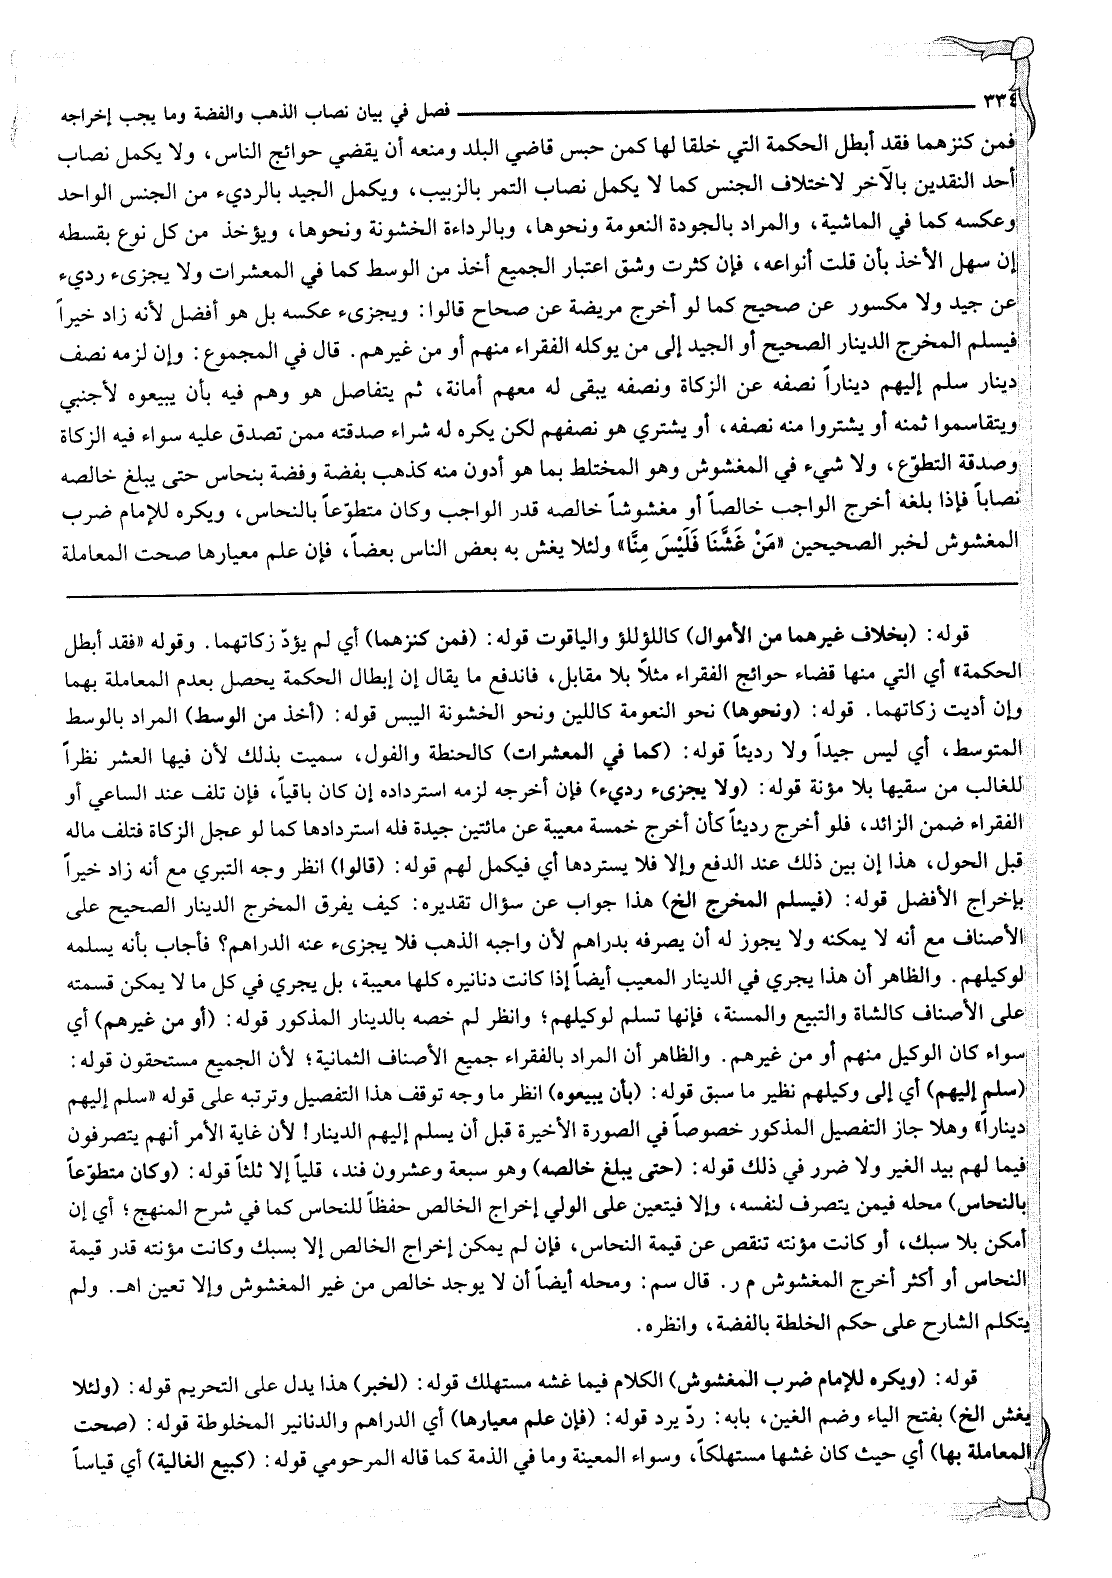 ٣٣٤ فصل في بيان نصاب الذهب والفضة وما يجب إخراجه
فمن كنزهما فقد أبطل الحكمة التي خلقا لها كمن حبس قاضي البلد ومنعه أن يقضي حوائج الناس، ولا يكمل نصاب
أحد النقدين بالآخر لاختلاف الجنس كما لا يكمل نصاب التمر بالزبيب، ويكمل الجيد بالرديء من الجنس الواحد
وعكسه كما في الماشية، والمراد بالجودة النعومة ونحوها، وبالرداءة الخشونة ونحوها، ويؤخذ من كل نوع بقسطه
إن سهل الأخذ بأن قلت أنواعه، فإن كثرت وشق اعتبار الجميع أخذ من الوسط كما في المعشرات ولا يجزىء رديء
عن جيد ولا مكسور عن صحيح كما لو أخرج مريضة عن صحاح قالوا: ويجزىء عكسه بل هو أفضل لأنه زاد خيراً
فيسلم المخرج الدينار الصحيح أو الجيد إلى من يوكله الفقراء منهم أو من غيرهم. قال في المجموع: وإن لزمه نصف
دينار سلم إليهم ديناراً نصفه عن الزكاة ونصفه يبقى له معهم أمانة، ثم يتفاصل هو وهم فيه بأن يبيعوه لأجنبي
ويتقاسموا ثمنه أو يشتروا منه نصفه، أو يشتري هو نصفهم لكن يكره له شراء صدقته ممن تصدق عليه سواء فيه الزكاة
وصدقة التطوّع، ولا شيء في المغشوش وهو المختلط بما هو أدون منه كذهب بفضة وفضة بنحاس حتى يبلغ خالصه
نصاباً فإذا بلغه أخرج الواجب خالصاً أو مغشوشاً خالصه قدر الواجب وكان متطوّعاً بالنحاس، ويكره للإمام ضرب
المغشوش لخبر الصحيحين «مَنْ غَشَّنَا فَلَيْسَ مِنَّا» ولئلا يغش به بعض الناس بعضاً، فإن علم معيارها صحت المعاملة
قوله: (بخلاف غيرهما من الأموال) كاللؤللؤ والياقوت قوله: (فمن كنزهما) أي لم يؤدّ زكاتهما. وقوله «فقد أبطل
الحكمة» أي التي منها قضاء حوائج الفقراء مثلاً بلا مقابل، فاندفع ما يقال إن إبطال الحكمة يحصل بعدم المعاملة بهما
وإن أديت زكاتهما. قوله: (ونحوها) نحو النعومة كاللين ونحو الخشونة اليبس قوله: (أخذ من الوسط) المراد بالوسط
المتوسط، أي ليس جيداً ولا رديئاً قوله: (كما في المعشرات) كالحنطة والفول، سميت بذلك لأن فيها العشر نظراً
للغالب من سقيها بلا مؤنة قوله: (ولا يجزىء رديء) فإن أخرجه لزمه استرداده إن كان باقياً، فإن تلف عند الساعي أو
الفقراء ضمن الزائد، فلو أخرج رديئاً كأن أخرج خمسة معيبة عن مائتين جيدة فله استردادها كما لو عجل الزكاة فتلف ماله
قبل الحول، هذا إن بين ذلك عند الدفع وإلا فلا يستردها أي فيكمل لهم قوله: (قالوا) انظر وجه التبري مع أنه زاد خيراً
بإخراج الأفضل قوله: (فيسلم المخرج الخ) هذا جواب عن سؤال تقديره: كيف يفرق المخرج الدينار الصحيح على
الأصناف مع أنه لا يمكنه ولا يجوز له أن يصرفه بدراهم لأن واجبه الذهب فلا يجزىء عنه الدراهم؟ فأجاب بأنه يسلمه
لوكيلهم. والظاهر أن هذا يجري في الدينار المعيب أيضاً إذا كانت دنانيره كلها معيبة، بل يجري في كل ما لا يمكن قسمته
على الأصناف كالشاة والتبيع والمسنة، فإنها تسلم لوكيلهم؛ وانظر لم خصه بالدينار المذكور قوله: (أو من غيرهم) أي
سواء كان الوكيل منهم أو من غيرهم. والظاهر أن المراد بالفقراء جميع الأصناف الثمانية؛ لأن الجميع مستحقون قوله:
(سلم إليهم) أي إلى وكيلهم نظير ما سبق قوله: (بأن يبيعوه) انظر ما وجه توقف هذا التفصيل وترتبه على قوله «سلم إليهم
ديناراً» وهلا جاز التفصيل المذكور خصوصاً في الصورة الأخيرة قبل أن يسلم إليهم الدينار! لأن غاية الأمر أنهم يتصرفون
فيما لهم بيد الغير ولا ضرر في ذلك قوله: (حتى يبلغ خالصه) وهو سبعة وعشرون فند، قلياً إلا ثلثاً قوله: (وكان متطوّعاً
بالنحاس) محله فيمن يتصرف لنفسه، وإلا فيتعين على الولي إخراج الخالص حفظاً للنحاس كما في شرح المنهج؛ أي إن
أمكن بلا سبك، أو كانت مؤنته تنقص عن قيمة النحاس، فإن لم يمكن إخراج الخالص إلا بسبك وكانت مؤنته قدر قيمة
النحاس أو أكثر أخرج المغشوش م ر. قال سم: ومحله أيضاً أن لا يوجد خالص من غير المغشوش وإلا تعين اهـ. ولم
يتكلم الشارح على حكم الخلطة بالفضة، وانظره.
قوله: (ويكره للإمام ضرب المغشوش) الكلام فيما غشه مستهلك قوله: (لخبر) هذا يدل على التحريم قوله: (ولئلا
يغش الخ) بفتح الياء وضم الغين، بابه: ردّ يرد قوله: (فإن علم معيارها) أي الدراهم والدنانير المخلوطة قوله: (صحت
المعاملة بها) أي حيث كان غشها مستهلكاً، وسواء المعينة وما في الذمة كما قاله المرحومي قوله: (كبيع الغالية) أي قياساً